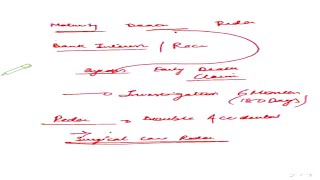 Maturity Death Rider
Bank Interest / Rate
Early Death
Claim
Investigation 6 Months
(180 Days)
Rider Double Accidental
Surgical Care Rider